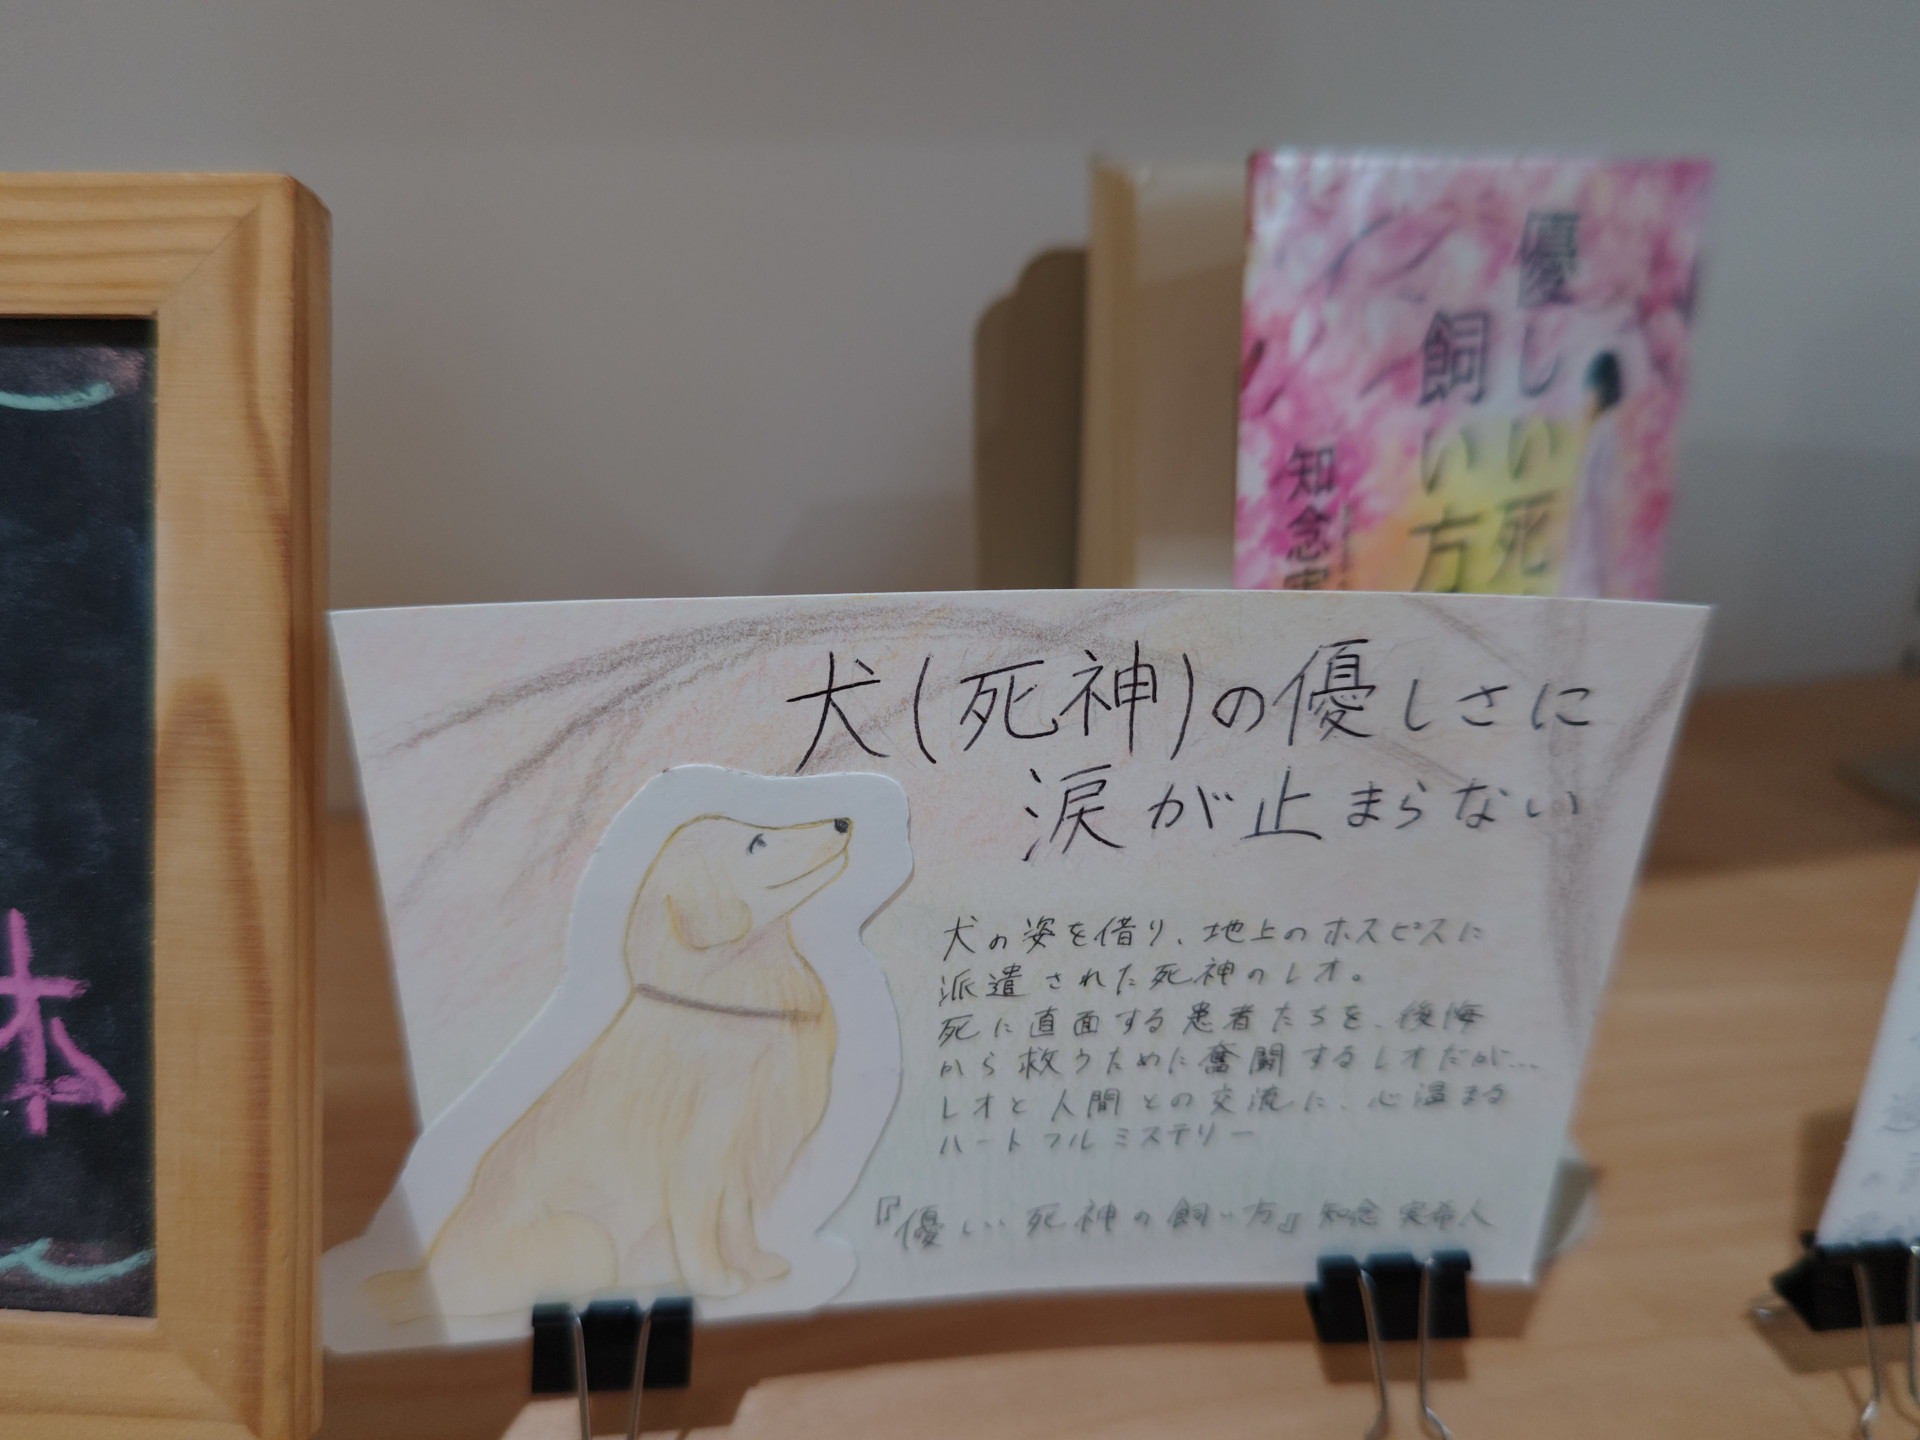 本
優しい死
飼い方
知念実
犬(死神)の優しさに
涙が止まらない
犬の姿を借り、地上のホスピスに
派遣された死神のレオ。
死に直面する患者たちを、後悔
から救うために奮闘するレオだが…
レオと人間との交流に、心温まる
ハートフルミステリー
『優しい死神の飼い方』知念 実希人